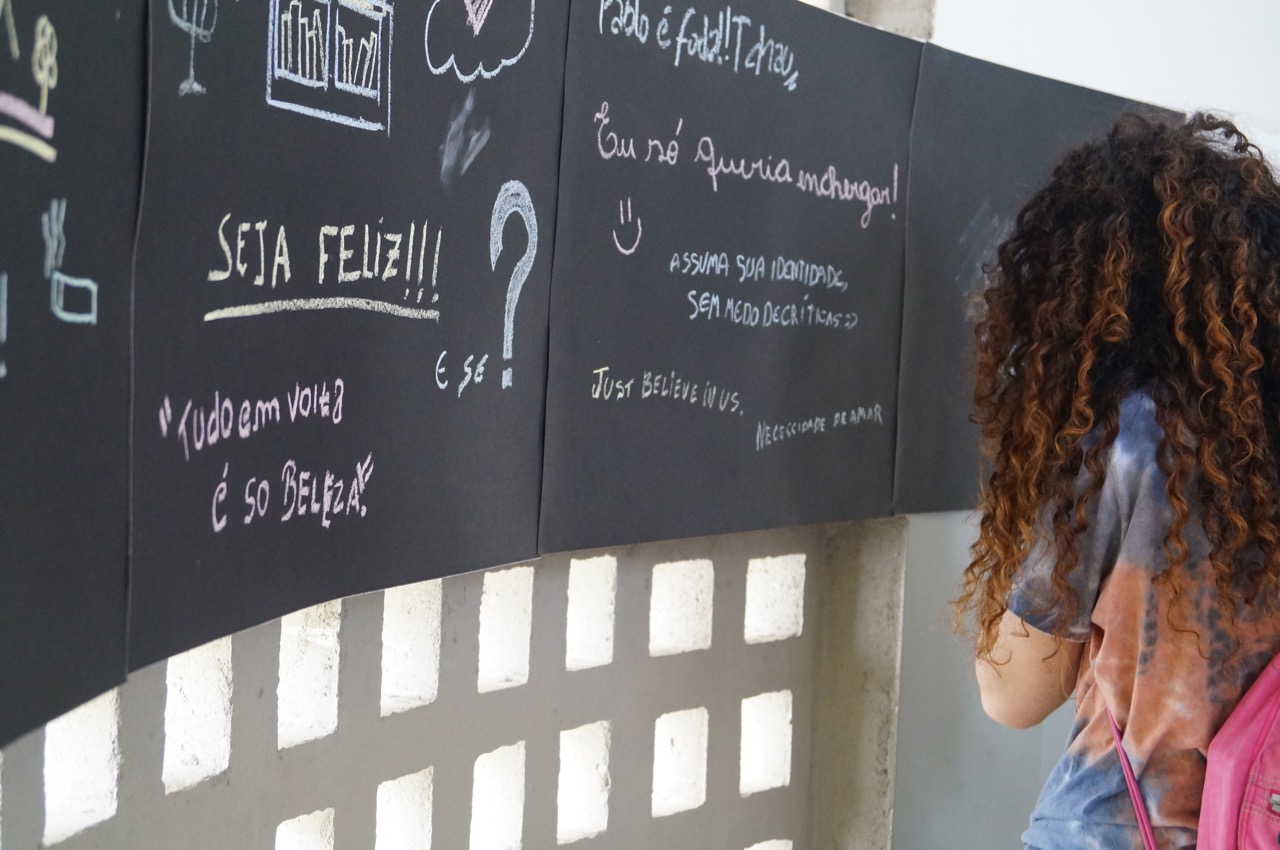 SEJA FELIZ!!!
E SE?
"Tudo em volta
é so BELEZA"!
Pablo é foda!! Tchau,
Eu só queria enchergar!
ASSUMA SUA IDENTIDADE,
SEM MEDO DE CRÍTICAS :)
JUST BELIEVE IN US.
NECESSIDADE DE AMAR